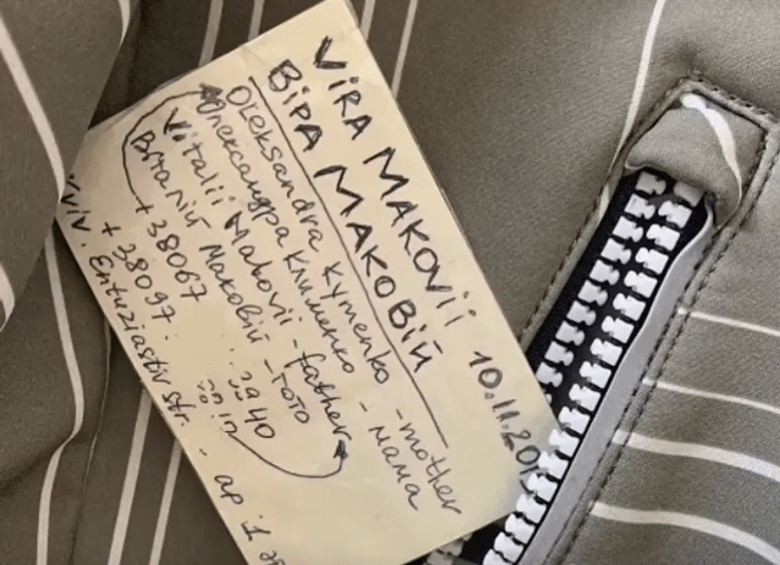 VIRA MAKOVII 10.11.20
ВІРА МАКОВІЙ
Oleksandra Kymenko - mother
Олександра Клименко - мама
Vitalii Makovii - father
Віталій Маковій - тато
+38067 3940
+38097
Entuziastiv str. - ap.